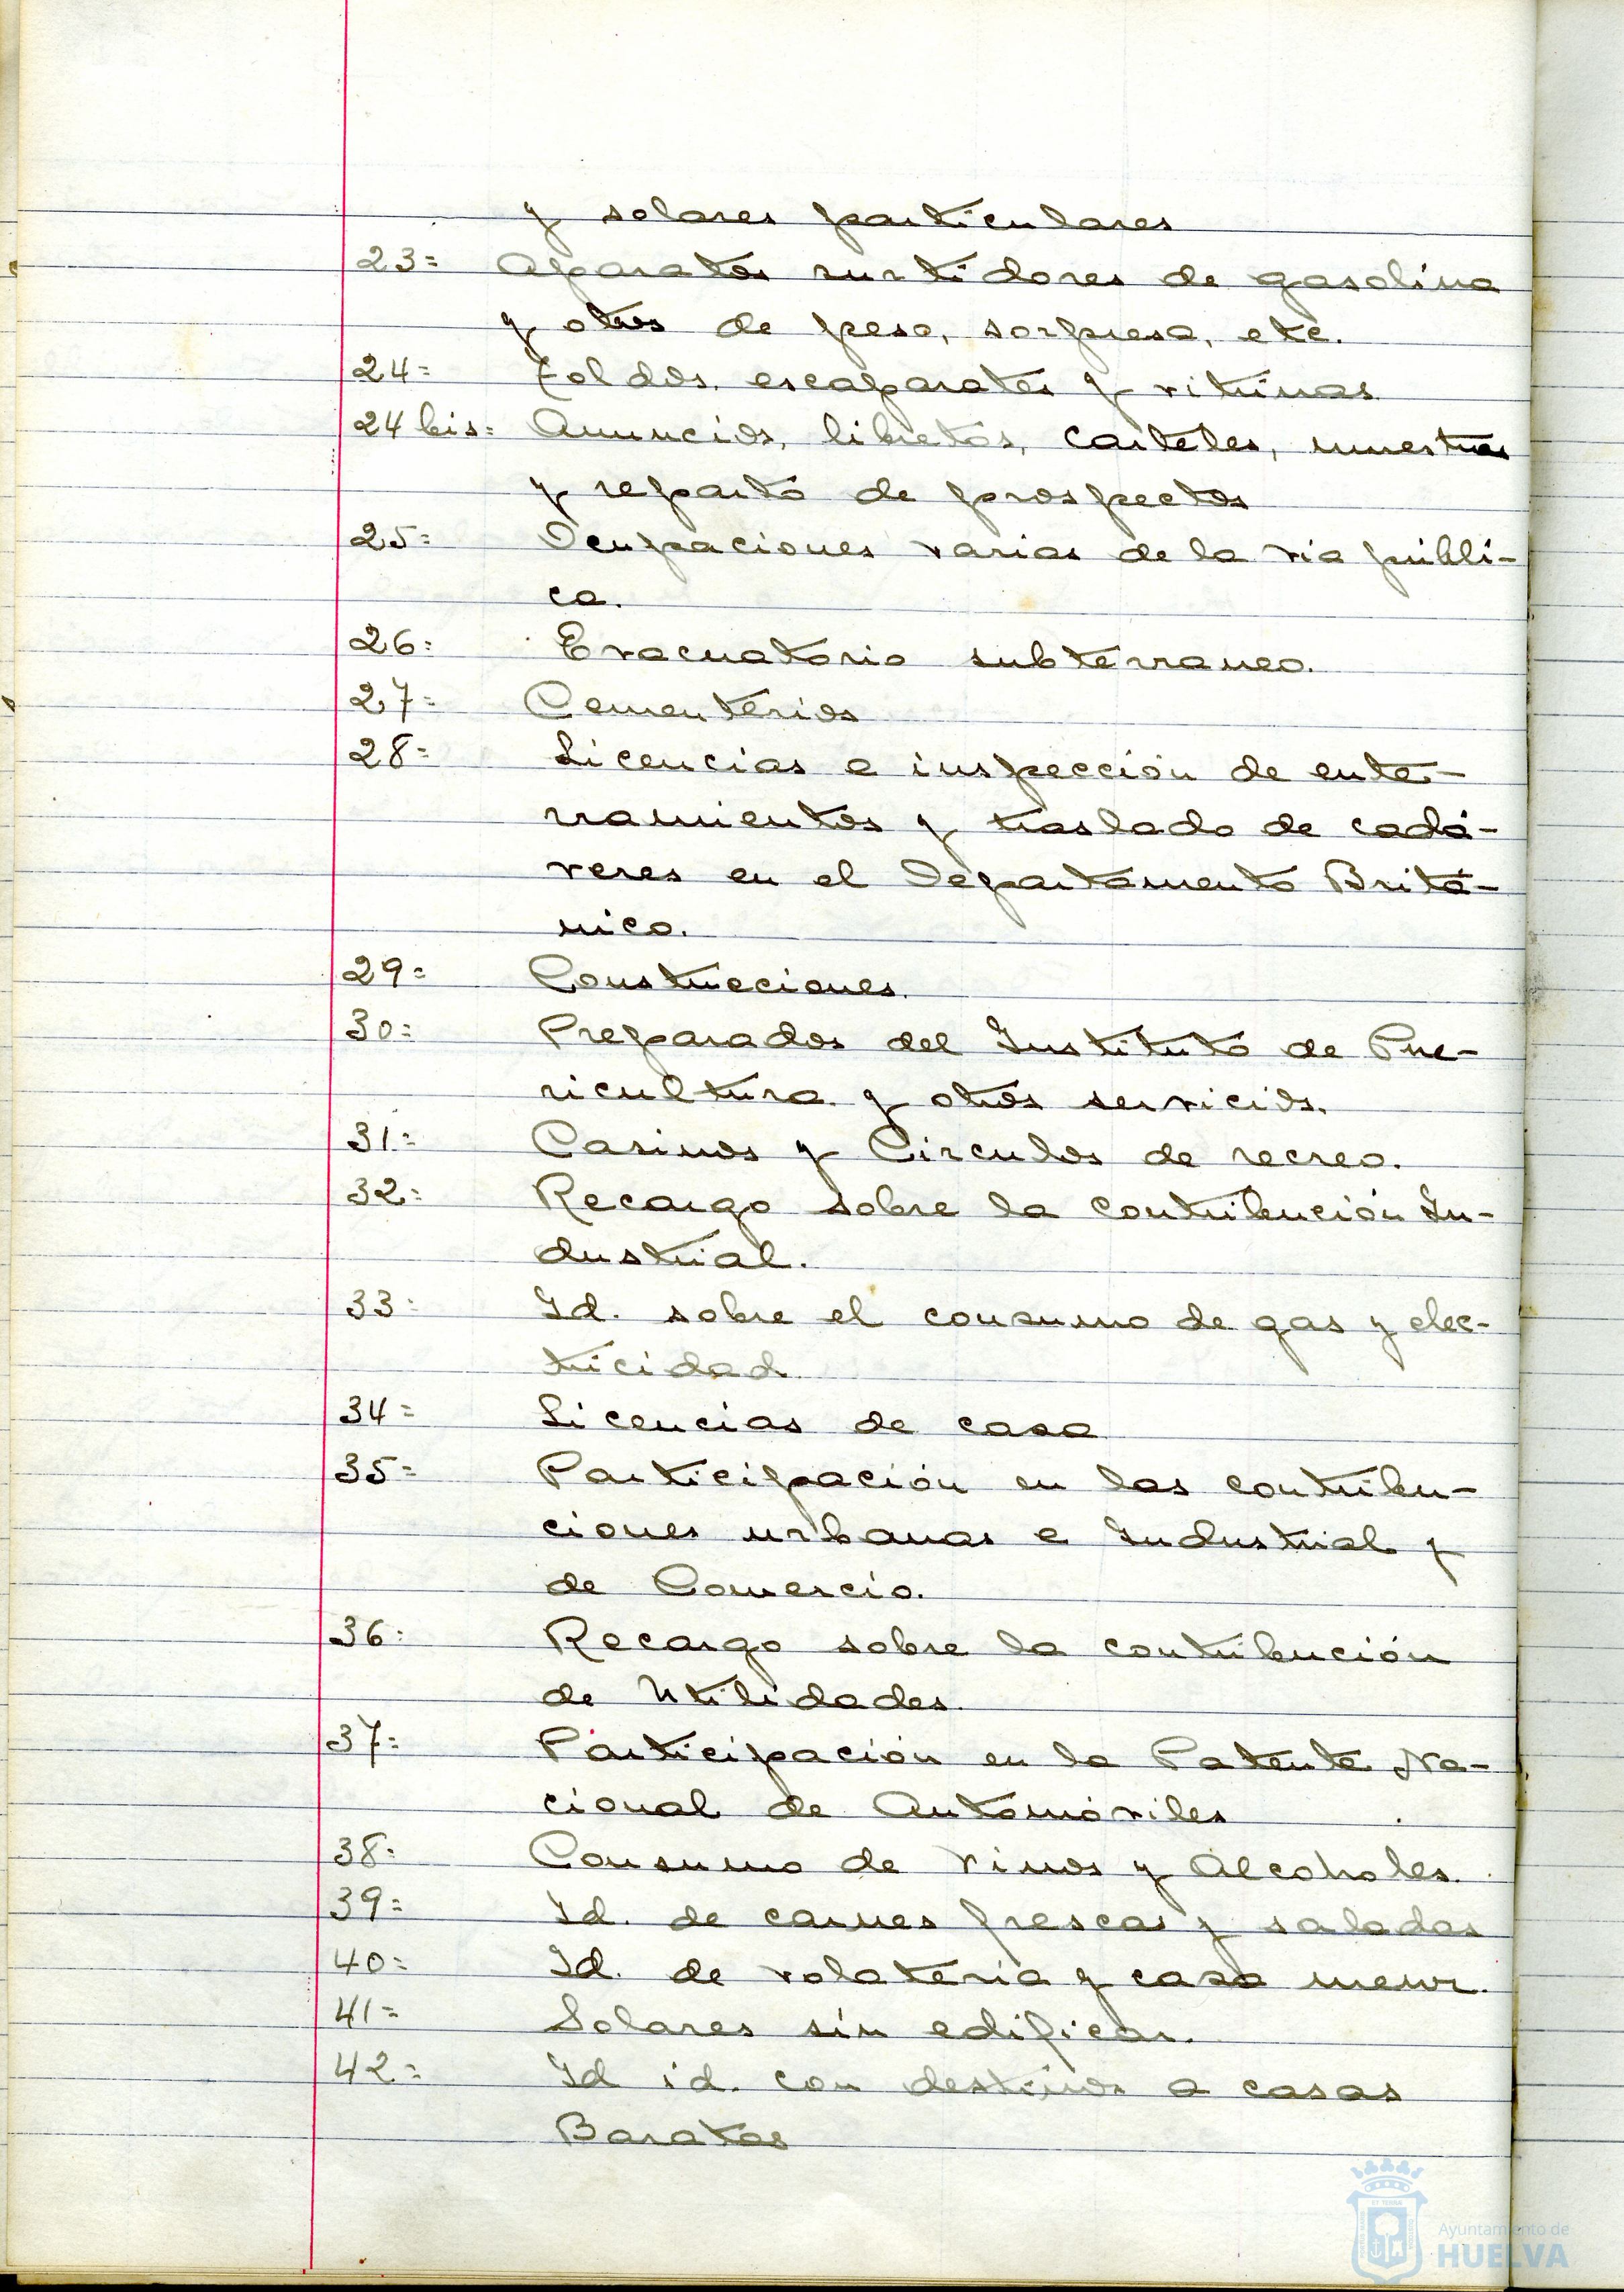 y solares particulares
23= Aparatos surtidores de gasolina
y otros de peso, sorpresa, etc.
24= Toldos, escaparates y vitrinas
24 bis= Anuncios, libretos, carteles, muestras
y reparto de prospectos
25= Ocupaciones varias de la via públi-
ca.
26= Evacuatorio subterraneo.
27= Cementerios
28= Licencias e inspección de ente-
rramientos y traslado de cadá-
veres en el Departamento Britá-
nico.
29= Construcciones.
30= Preparados del Instituto de Pue-
ricultura y otros servicios.
31= Casinos y Circulos de recreo.
32= Recargo sobre la contribución In-
dustrial.
33= Id. sobre el consumo de gas y elec-
tricidad
34= Licencias de caza
35= Participación en las contribu-
ciones urbanas e Industrial y
de Comercio.
36= Recargo sobre la contribución
de Utilidades.
37= Participación en la Patente Na-
cional de Automóviles
38= Consumo de Vinos y Alcoholes.
39= Id. de carnes frescas y saladas
40= Id. de volateria y caza menor.
41= Solares sin edificar.
42= Id id. con destinos a casas
Baratas
Ayuntamiento de
HUELVA